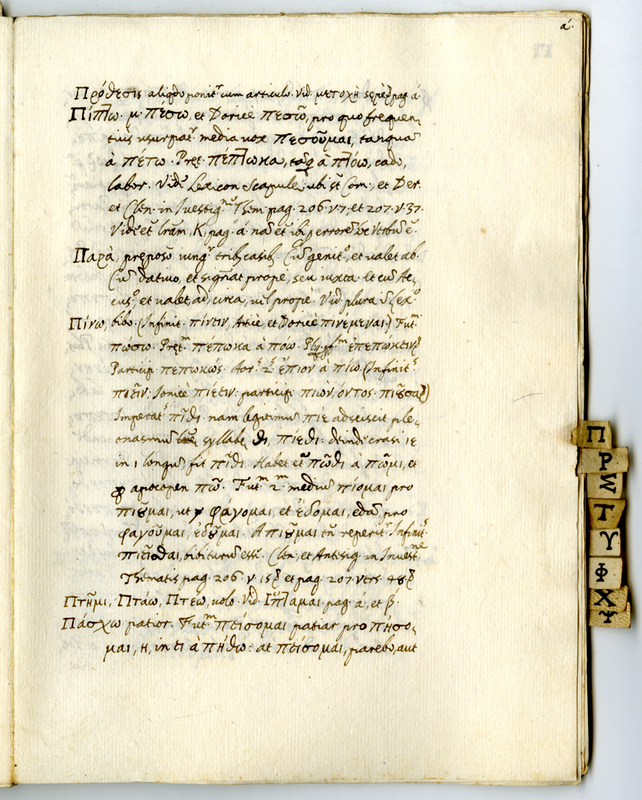 á
Πρόθεσις aliqdo ponitr cum articulo. Vid. μετοχὴ pag. á
Πίπτω. μ. πέσω, et Doricè πεσῶ, pro quo frequen,
tius usurpar media uox πεσοῦμαι, tanqua
à πέτω. Præt. πέπτωκα, à πτόω, cado,
labor. Vide Lexicon Scapulæ, ubi et Com., et Der.
et Clen. in Inuestig. Them. pag. 206. v. 7. et 207. v. 37.
Vide et Gram. K. pag. á.
Παρὰ, prepos iung tribs casib. Cū genit., et ualet ab.
Cū datiuo, et signat prope, seu iuxta. et cū Ac,
cus., et ualet, ad, circa, uel prope. Vid. plura Lex.
Πίνω, bibo. Infinit. πίνειν, Atticè, et Doricè πινεμεναι. Fut.
πώσω. Præt. πέπωκα à πόω. Plq. pf. ἐπεπώκειν
Particip. πεπωκὼς. Aor. 2. ἔπιον à πίω. Infinit.
πιεῖν. Ionicè πιέειν. particip. πιὼν, όντος.
Imperat. πῖθι nam legitimū πίε adsciscit ple,
onasmū syllabæ θι, πίεθι: deinde crasi ιε
in ι longū fit πῖθι. Habet et πῶθι à πῶμι, et
apocopen πῶ. Fut. 2. mediū πίομαι pro
πιοῦμαι, ut φάγομαι, et ἔδομαι, edo, pro
φαγοῦμαι, ἐδοῦμαι. A πιοῦμαι tn reperit. Infinit.
πιεῖσθαι, bibiturū esse. Clen., et Antesig. in Inuest.
Thematis pag. 206. v. 15 et pag. 207. vers. 48
Πτῆμι, Πτάω, Πτέω, uolo. Vid. Ἵπταμαι pag. á, et β.
Πάσχω patior. Fut. πείσομαι patiar pro πήσο,
μαι, η, in ει à πήθω: at πείσομαι, parebo, aut
Π
Ρ
Σ
Τ
Υ
Φ
Χ
Ψ